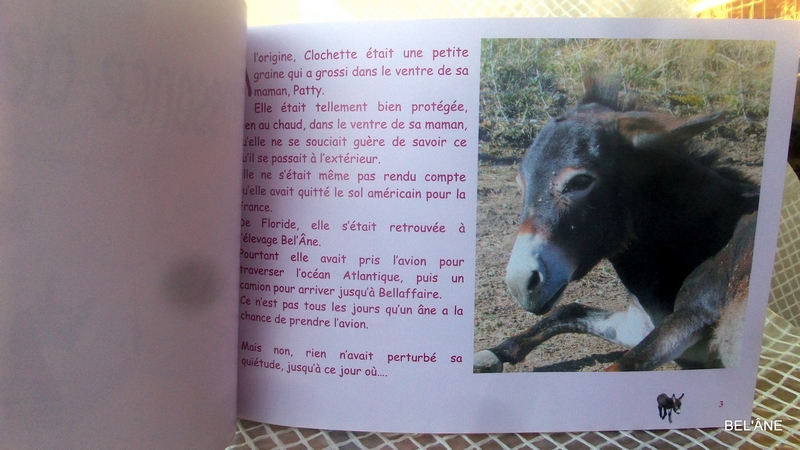 l'origine, Clochette était une petite
graine qui a grossi dans le ventre de sa
maman, Patty.
Elle était tellement bien protégée,
en au chaud, dans le ventre de sa maman,
u'elle ne se souciait guère de savoir ce
u'il se passait à l'extérieur.
lle ne s'était même pas rendu compte
u'elle avait quitté le sol américain pour la
France.
De Floride, elle s'était retrouvée à
l'élevage Bel'Âne.
Pourtant elle avait pris l'avion pour
traverser l'océan Atlantique, puis un
camion pour arriver jusqu'à Bellaffaire.
Ce n'est pas tous les jours qu'un âne a la
chance de prendre l'avion.
Mais non, rien n'avait perturbé sa
quiétude, jusqu'à ce jour où....
3
BEL'ÂNE